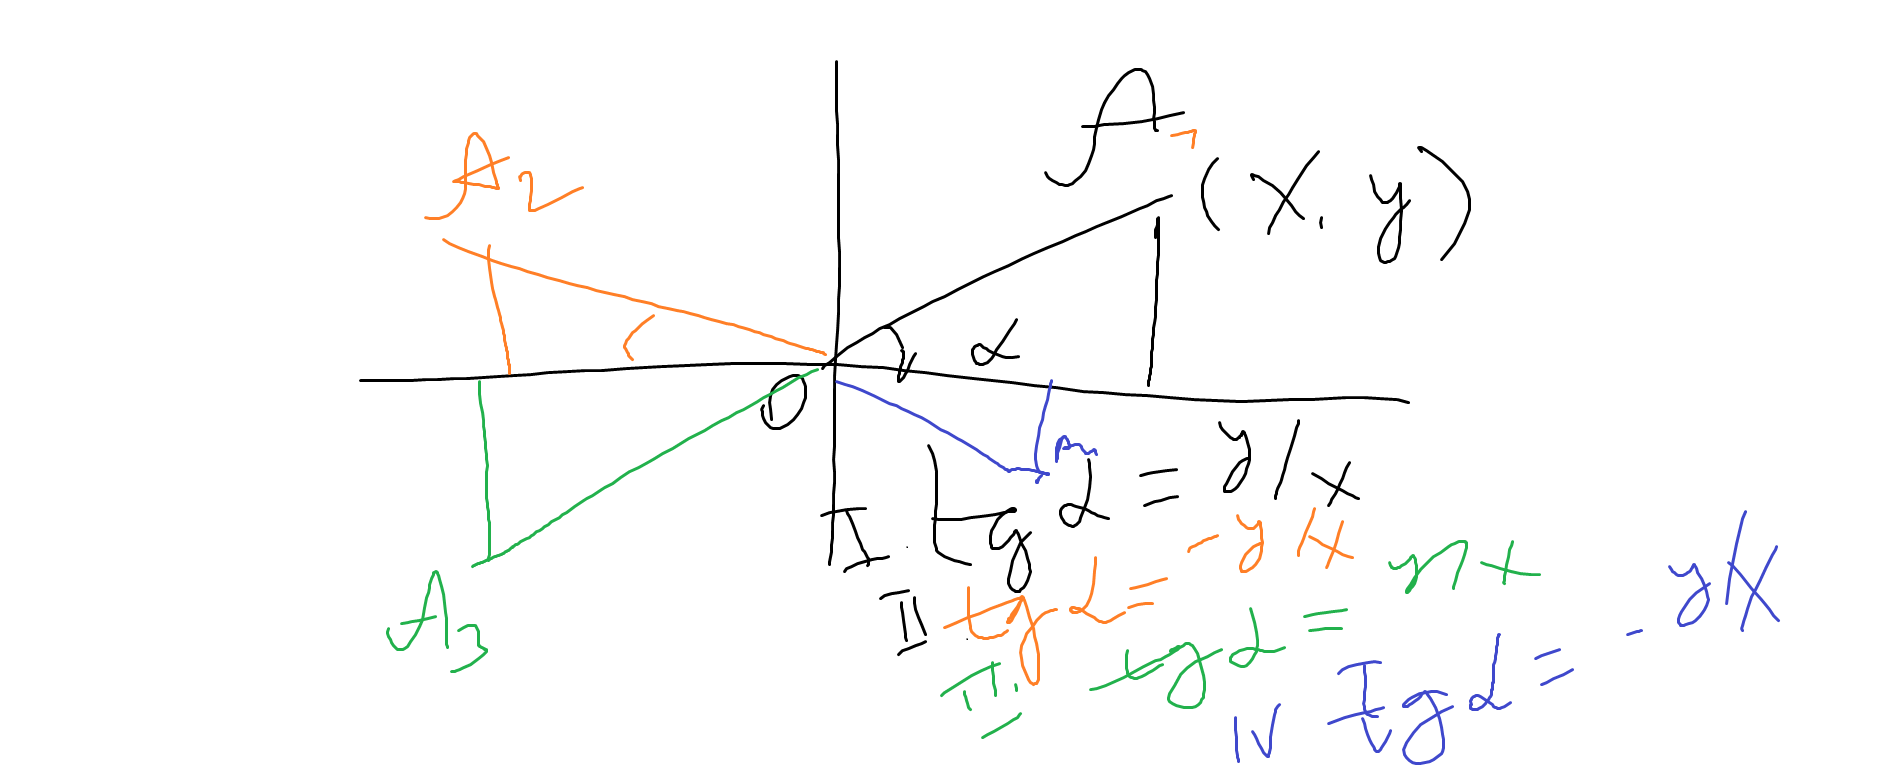 A₁
(x, y)
A₂
α
O
A₃
I. tg α = y/x
II tg α = - y/x
III. tg α = y/x
IV tg α = - y/x